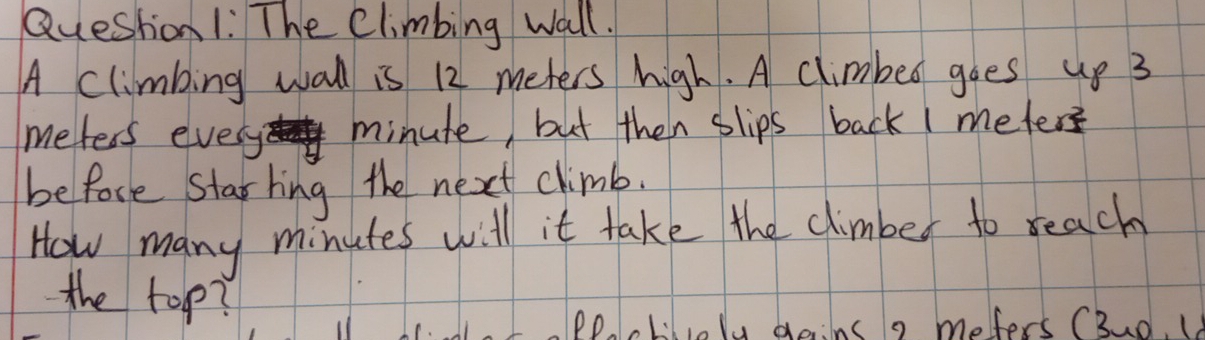 Question 1: The Climbing Wall.
A Climbing wall is 12 meters high. A climber goes up 3
meters every minute, but then slips back 1 meter
before starting the next climb.
How many minutes will it take the climber to reach
the top?
effectively gains 2 meters (3up,